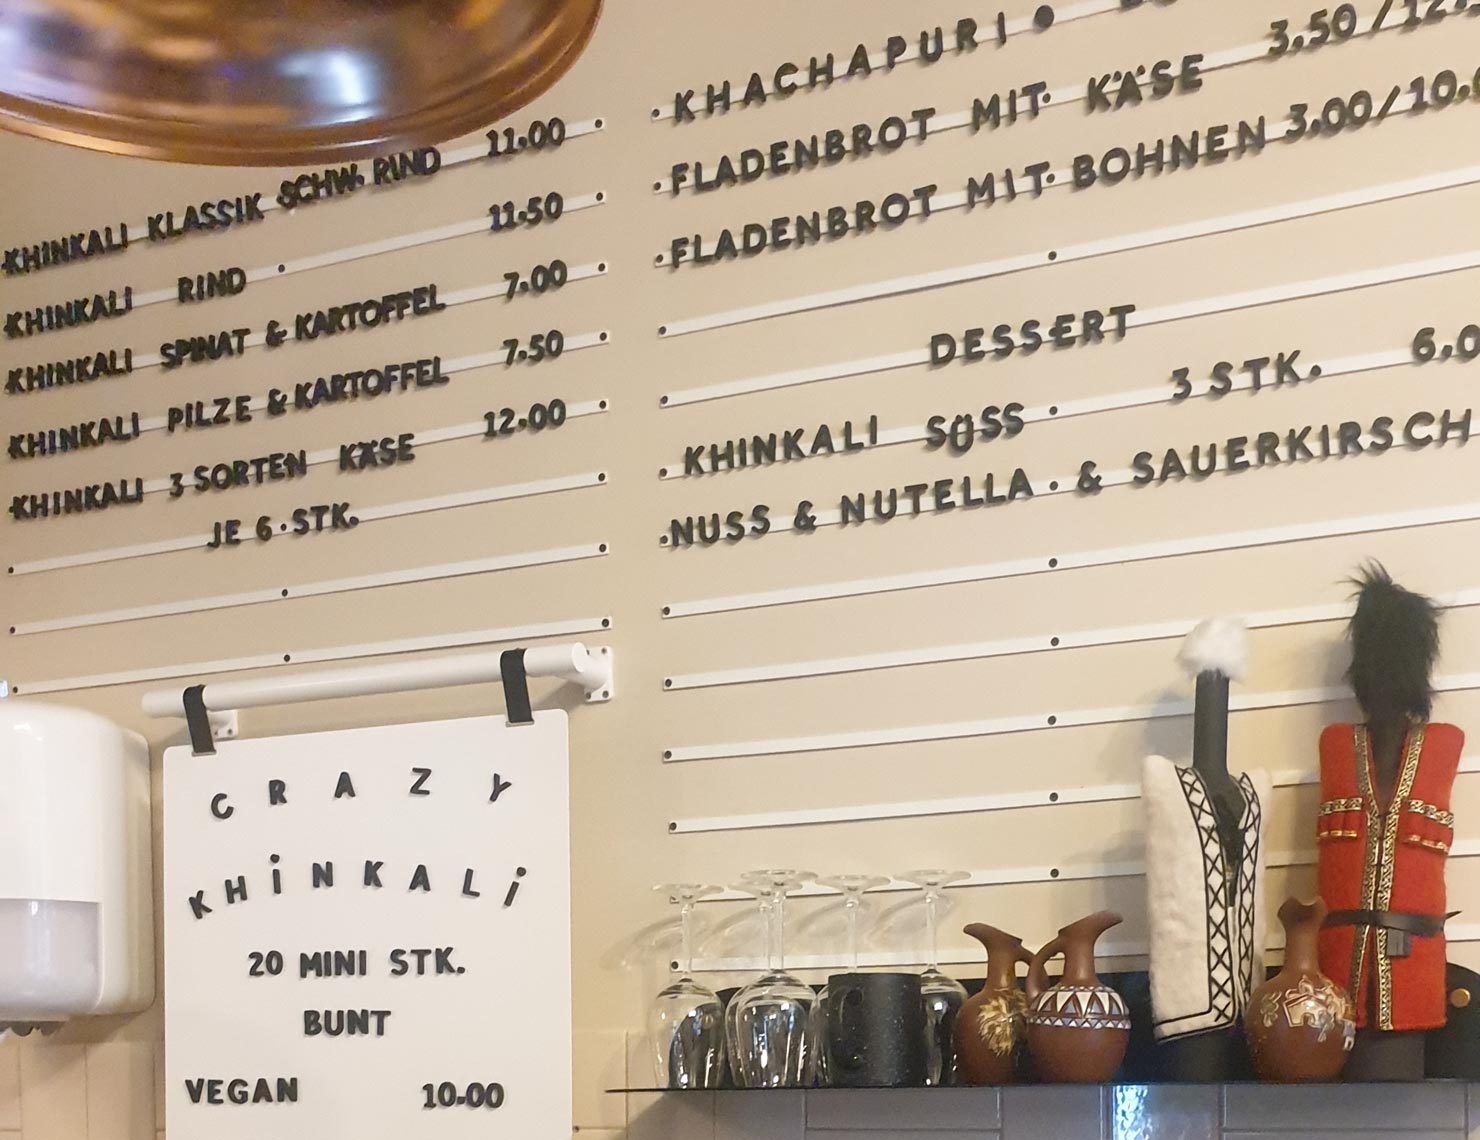 KHINKALI KLASSIK SCHW. RIND 11.00
KHINKALI RIND 11.50
KHINKALI SPINAT & KARTOFFEL 7.00
KHINKALI PILZE & KARTOFFEL 7.50
KHINKALI 3 SORTEN KÄSE 12.00
JE 6 STK.
KHACHAPURI
FLADENBROT MIT KÄSE 3.50/12.
FLADENBROT MIT BOHNEN 3.00/10.0
DESSERT
KHINKALI SÜSS 3 STK. 6.0
NUSS & NUTELLA & SAUERKIRSCH
CRAZY
KHiNKALi
20 MINI STK.
BUNT
VEGAN 10.00